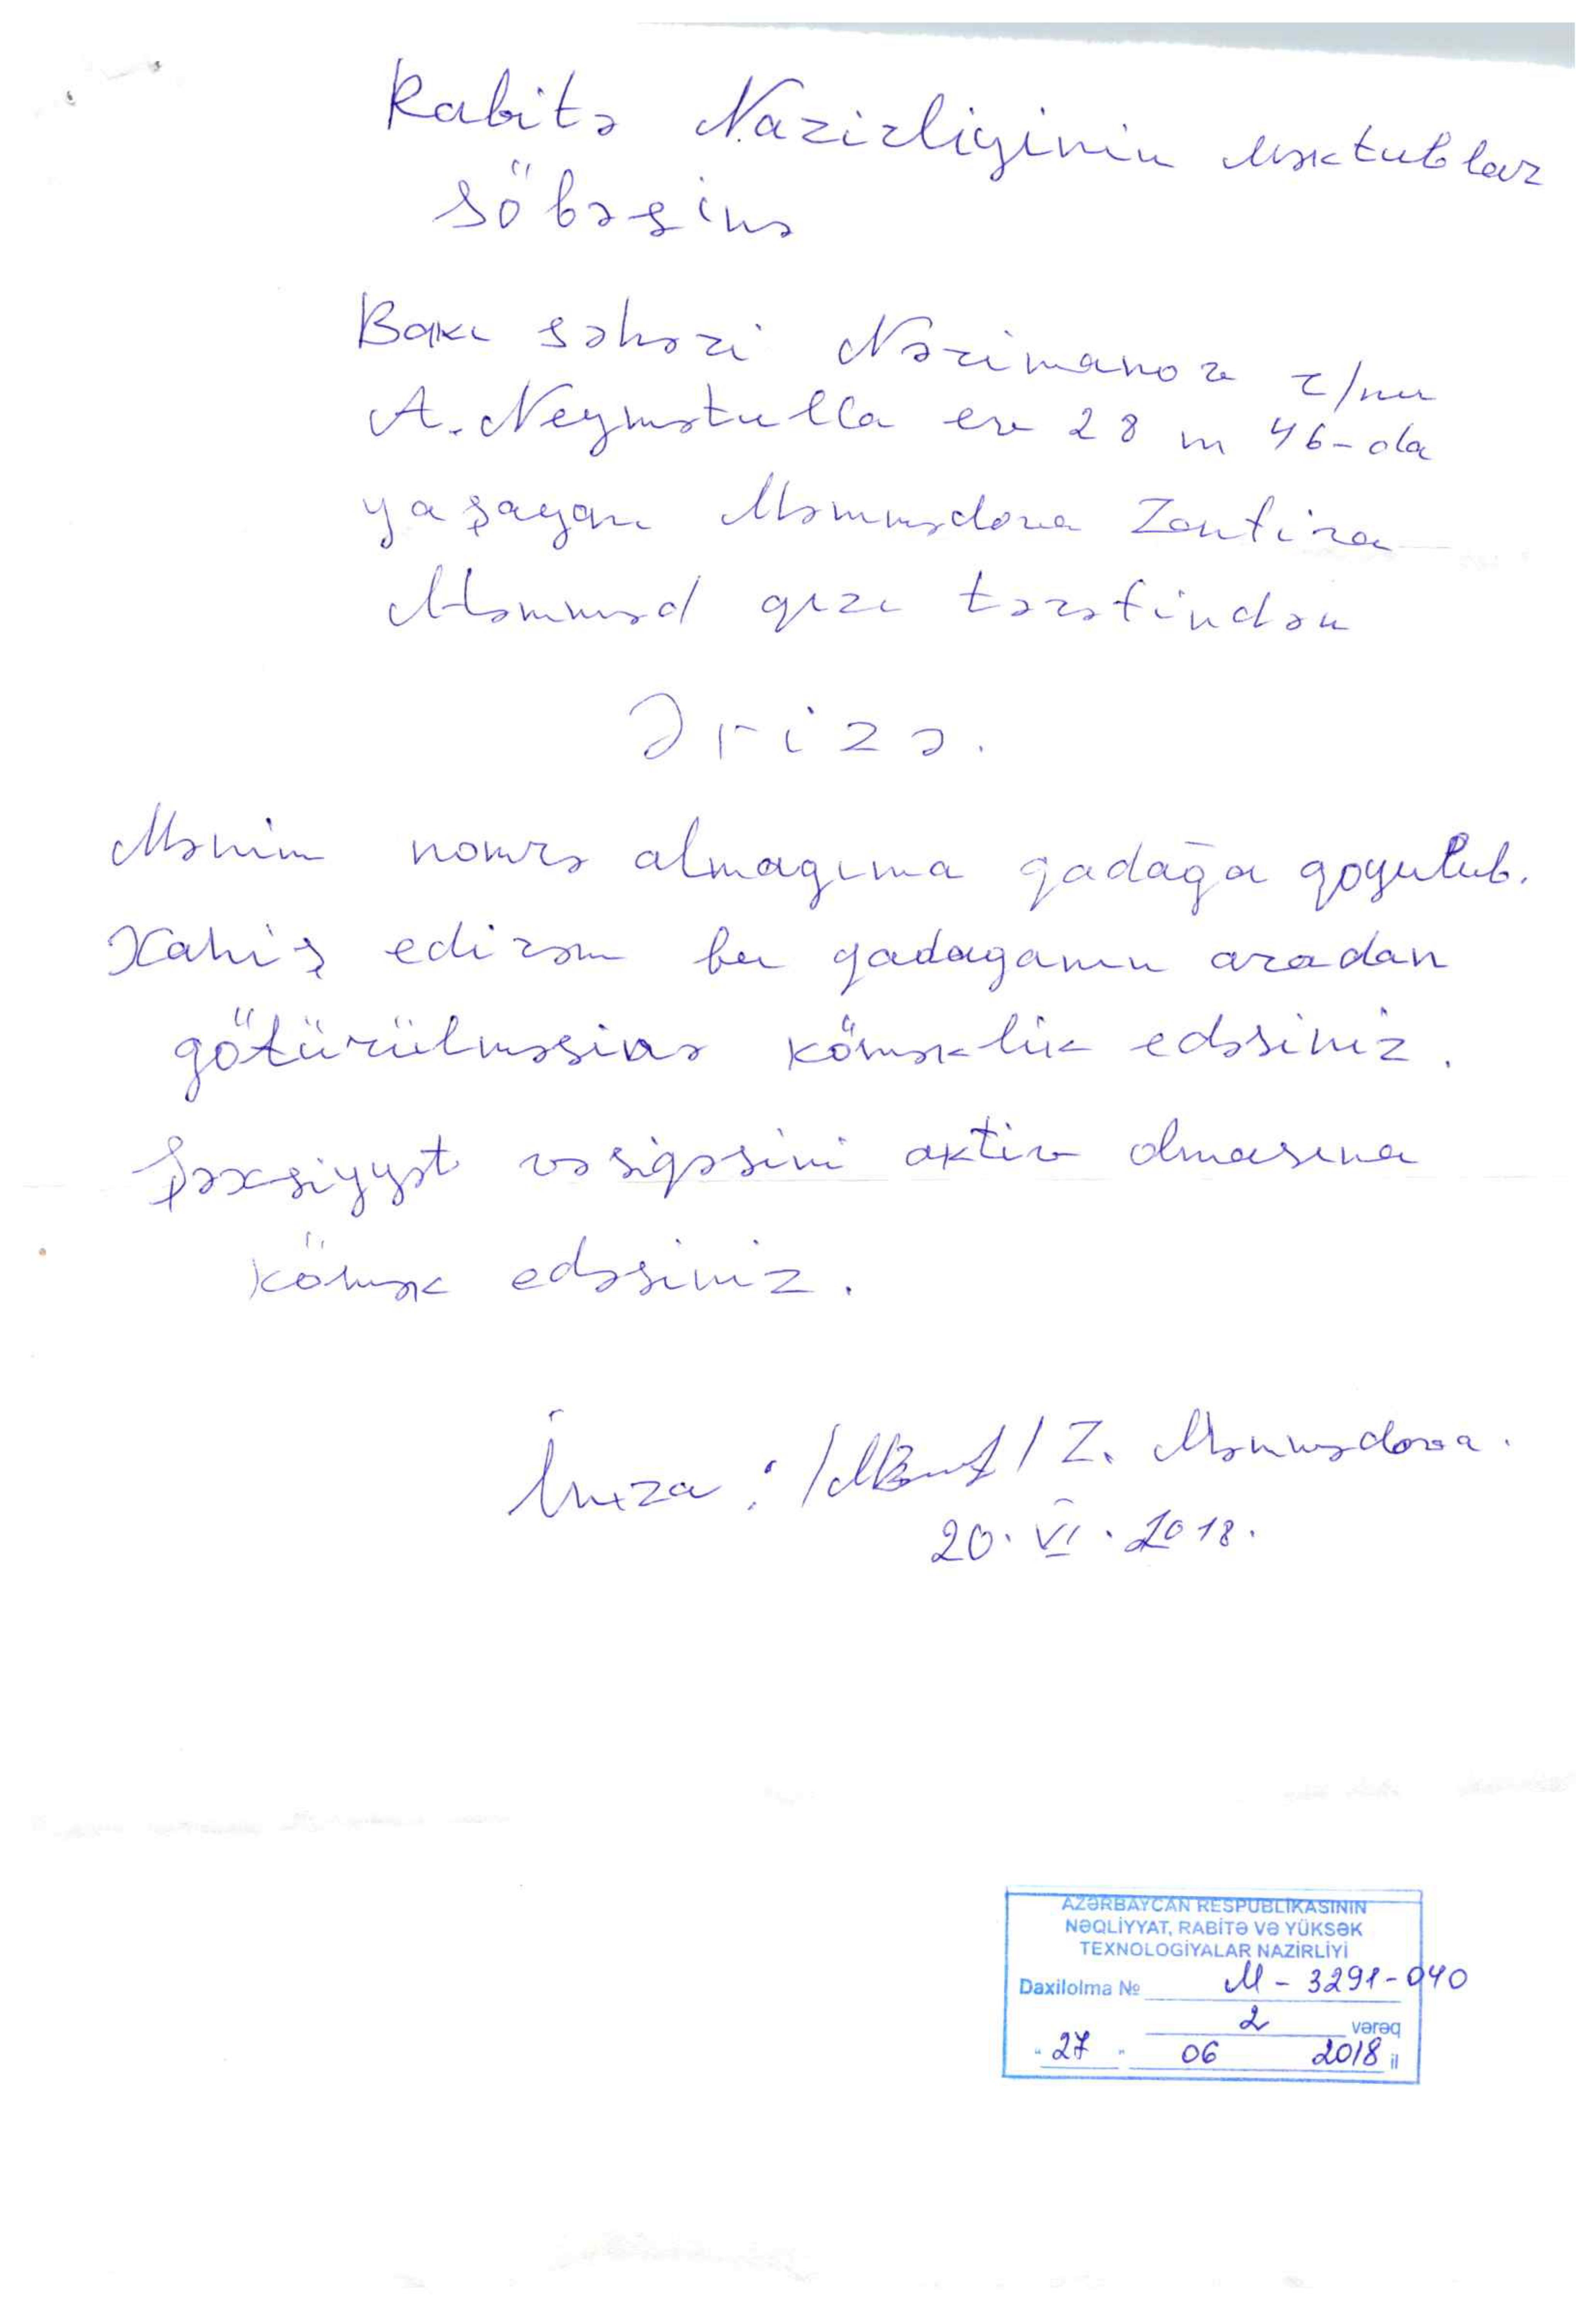 Rabitə Nazirliyinin Məktublar
Şöbəsinə
Bakı şəhəri Nərimanov r/nu
A. Neymətulla ev 28 m 46-da
yaşayan Məmmədova Zanfira
Məmməd qızı tərəfindən
Ərizə.
Mənim nomrə almagıma qadağa qoyulub.
Xahiş edirəm bu qadaganın aradan
götürülməsinə köməklik edəsiniz.
Şəxsiyyət vəsiqəsini aktiv olmasına
kömək edəsiniz.
İmza: / / Z. Məmmədova.
20. VI. 2018.
AZƏRBAYCAN RESPUBLİKASININ
NƏQLİYYAT, RABİTƏ VƏ YÜKSƏK
TEXNOLOGİYALAR NAZİRLİYİ
Daxilolma № M - 3291-040
2 vərəq
" 27 " 06 2018 il